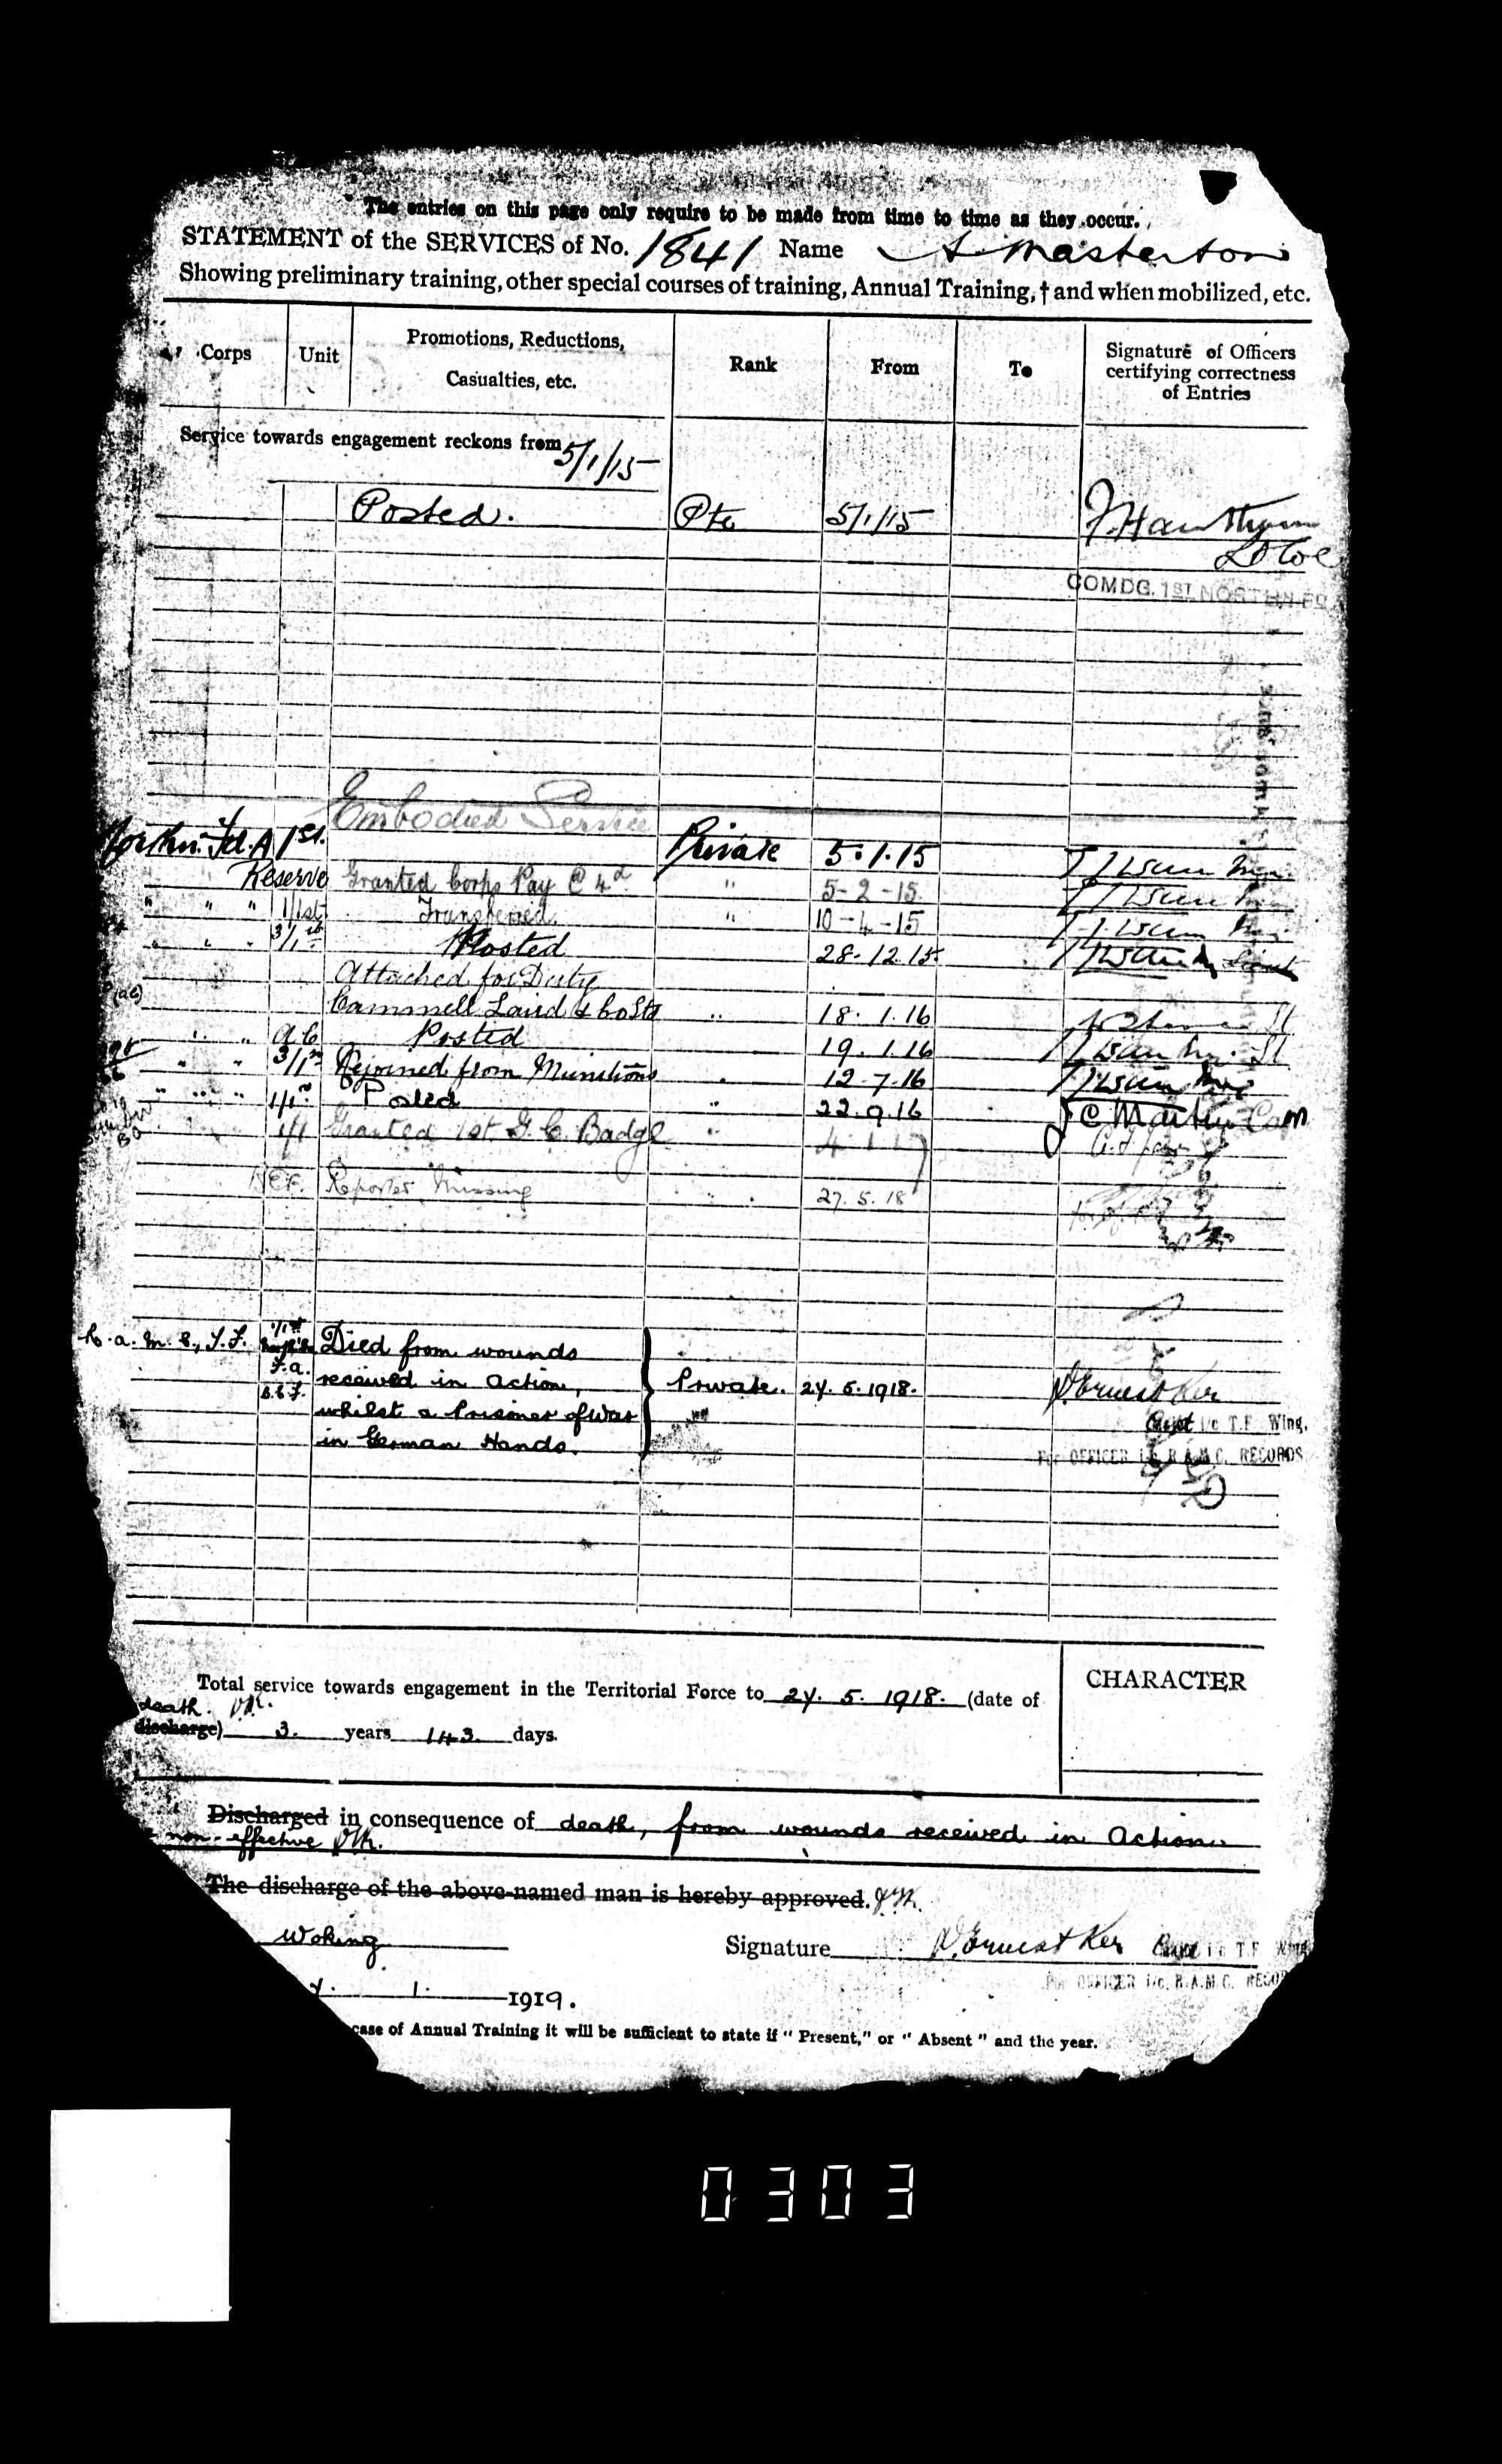 The entries on this page only require to be made from time to time as they occur.
STATEMENT of the SERVICES of No. 1841 Name A. Masterton
Showing preliminary training, other special courses of training, Annual Training, † and when mobilized, etc.
Corps Unit Promotions, Reductions, Casualties, etc. Rank From To Signature of Officers certifying correctness of Entries
Service towards engagement reckons from 5/1/15
Posted. Pte 5/1/15
COMDG. 1ST NORTHN. FD.
Embodied Service
Northn. Fd. A 1st. Private 5.1.15
" Reserve Granted Corps Pay @ 4d " 5-2-15
" " " 1/1st Transferred " 10-4-15
" " " 3/1st Posted 28.12.15
Attached for Duty
Cammell Laird & Co Ltd " 18.1.16
" " Posted 19.1.16
" " 3/1st Rejoined from Munitions " 12-7-16
" " " 1/1st Posted " 22.9.16
1/1 Granted 1st G.C. Badge " 4.1.17
BEF. Reported Missing " 27.5.18
R.A.M.C., T.F. 1/1st Died from wounds
F.A. received in action, Private. 27.5.1918. D. Ernest Ker
B.E.F. whilst a Prisoner of War Capt i/c T.F. Wing.
in German Hands. For OFFICER i/c R.A.M.C. RECORDS
Total service towards engagement in the Territorial Force to 27. 5. 1918. (date of
death.
discharge) 3. years 143 days.
CHARACTER
Discharged in consequence of death, from wounds received in Action.
non-effective
The discharge of the above-named man is hereby approved.
Woking Signature D. Ernest Ker Capt i/c T.F. Wing
7. 1. 1919. For OFFICER i/c. R.A.M.C. RECO
case of Annual Training it will be sufficient to state if " Present," or " Absent " and the year.
0303